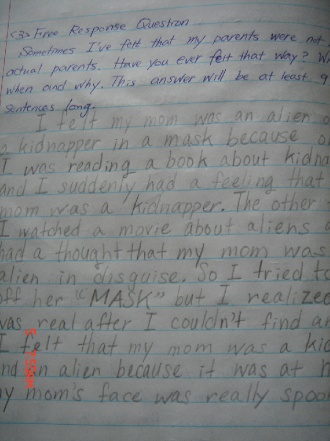 <3> Free Response Question
Sometimes I've felt that my parents were not
actual parents. Have you ever felt that way?
when and why. This answer will be at least 9
sentences long.
I felt my mom was an alien
a kidnapper in a mask because
I was reading a book about
and I suddenly had a feeling that
mom was a kidnapper. The other
I watched a movie about aliens
had a thought that my mom was
alien in disguise. So I tried to
off her "MASK" but I realized
was real after I couldn't find
I felt that my mom was a
and an alien because it was at
my mom's face was really